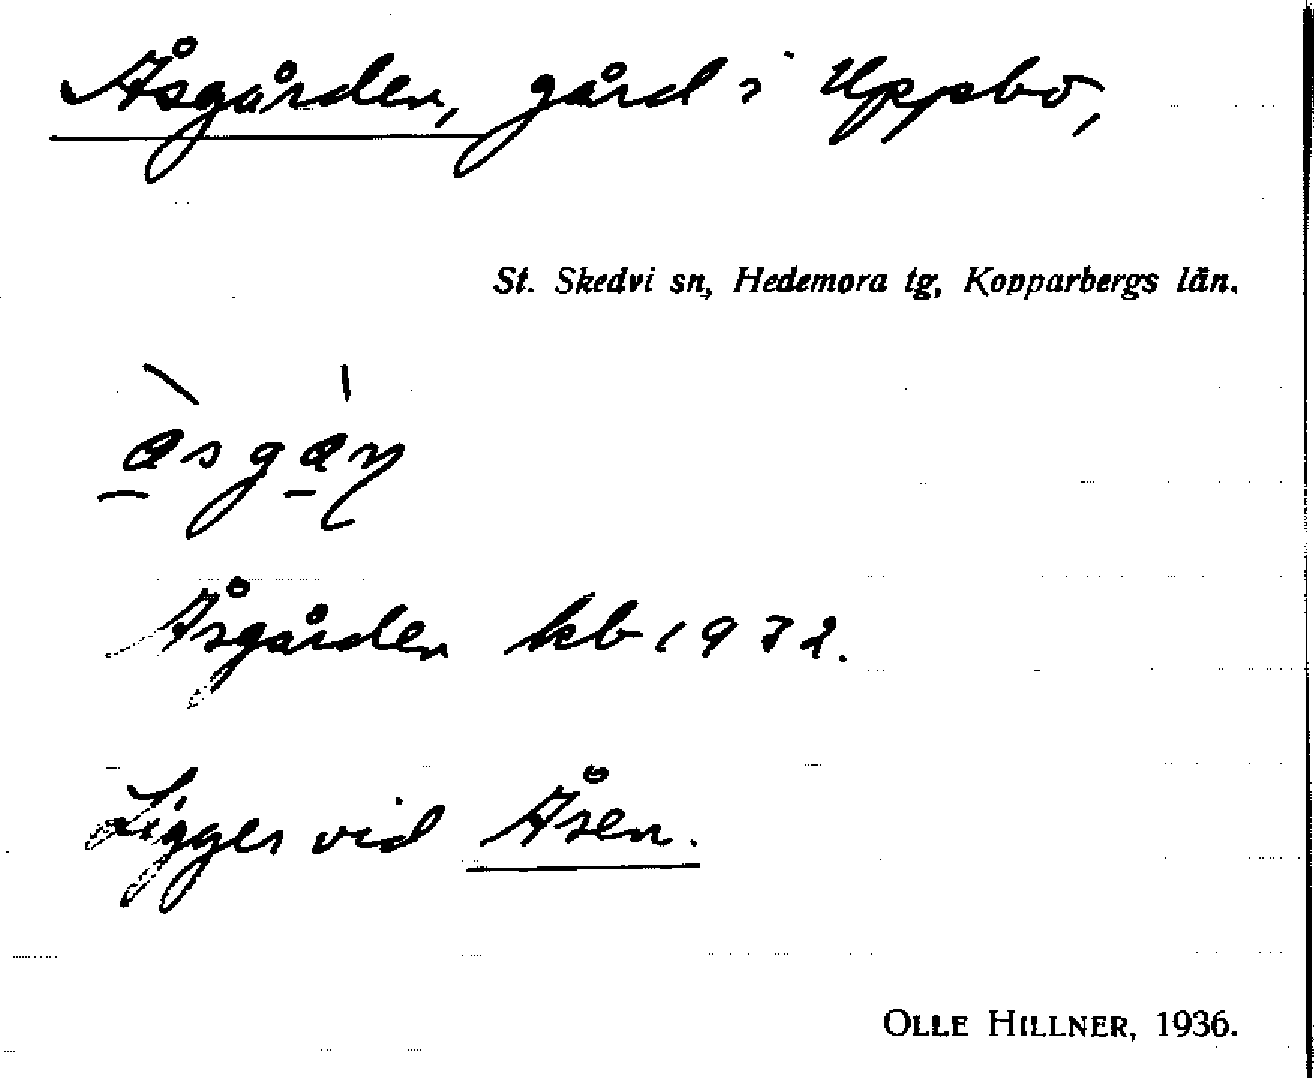 Åsgården, gård i Uppbo,
St. Skedvi sn, Hedemora tg, Kopparbergs län.
Åsgården kb 1932.
Ligger vid Åsen.
OLLE HILLNER, 1936.